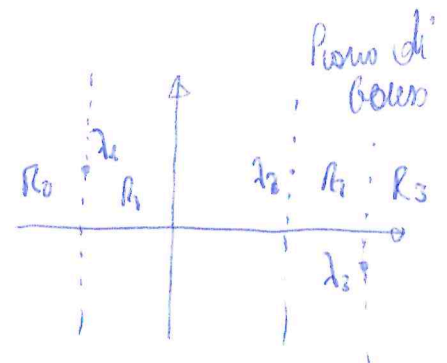 Piano di
Gauss
λ₁
R₀ R₁ λ₂ R₂ R₃
λ₃